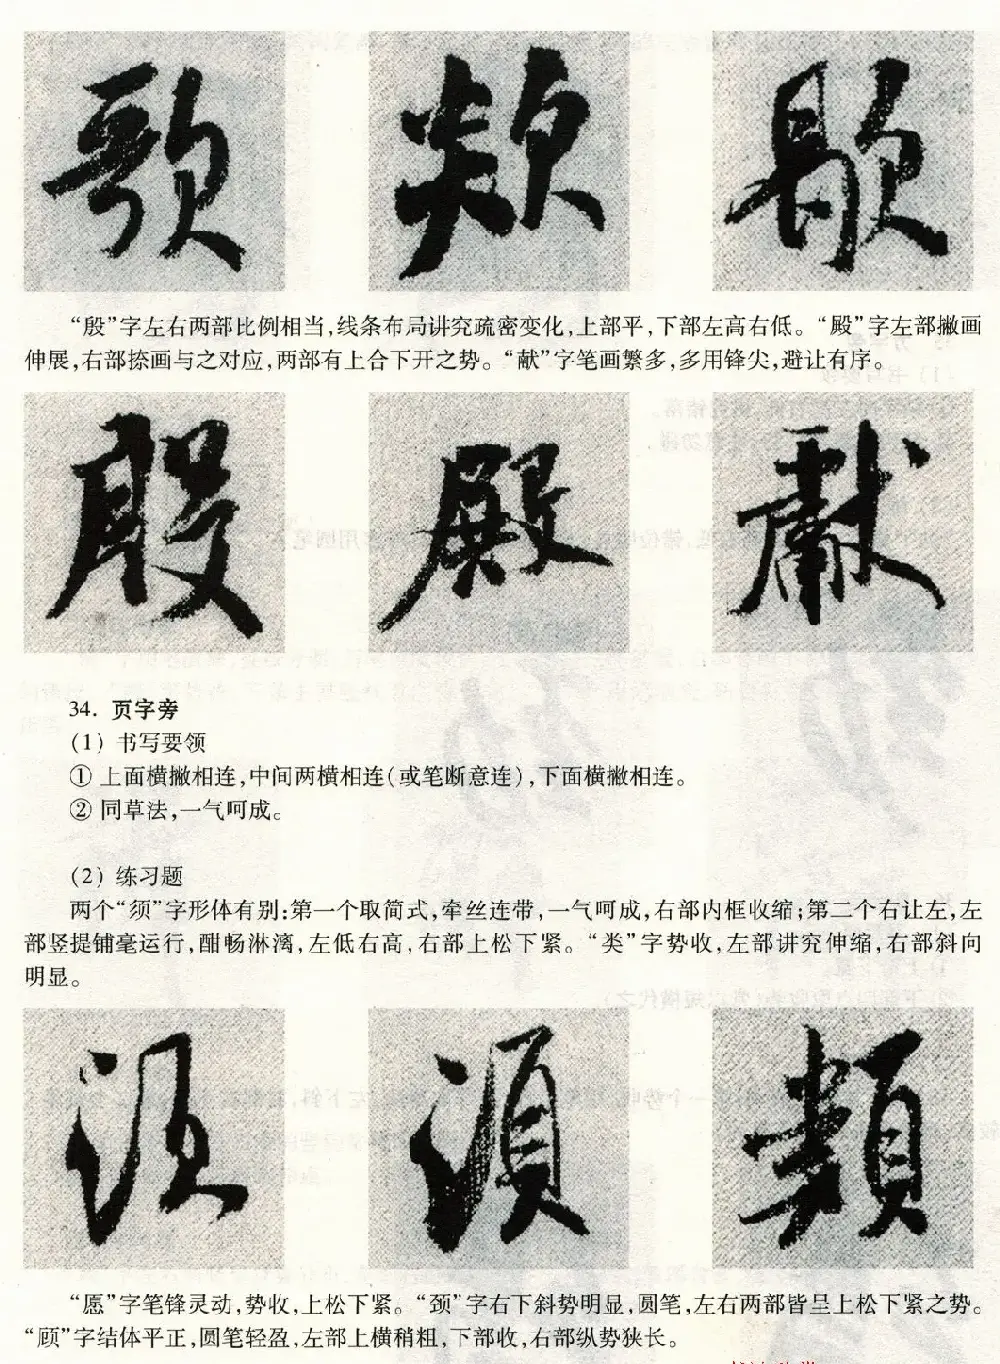 歌 欻 歇
“殷”字左右两部比例相当,线条布局讲究疏密变化,上部平,下部左高右低。“殿”字左部撇画
伸展,右部捺画与之对应,两部有上合下开之势。“献”字笔画繁多,多用锋尖,避让有序。
殷 殿 獻
34. 页字旁
(1) 书写要领
① 上面横撇相连,中间两横相连(或笔断意连),下面横撇相连。
② 同草法,一气呵成。
(2) 练习题
两个“须”字形体有别:第一个取简式,牵丝连带,一气呵成,右部内框收缩;第二个右让左,左
部竖提铺毫运行,酣畅淋漓,左低右高,右部上松下紧。“类”字势收,左部讲究伸缩,右部斜向
明显。
須 須 類
“愿”字笔锋灵动,势收,上松下紧。“颈”字右下斜势明显,圆笔,左右两部皆呈上松下紧之势。
“顾”字结体平正,圆笔轻盈,左部上横稍粗,下部收,右部纵势狭长。